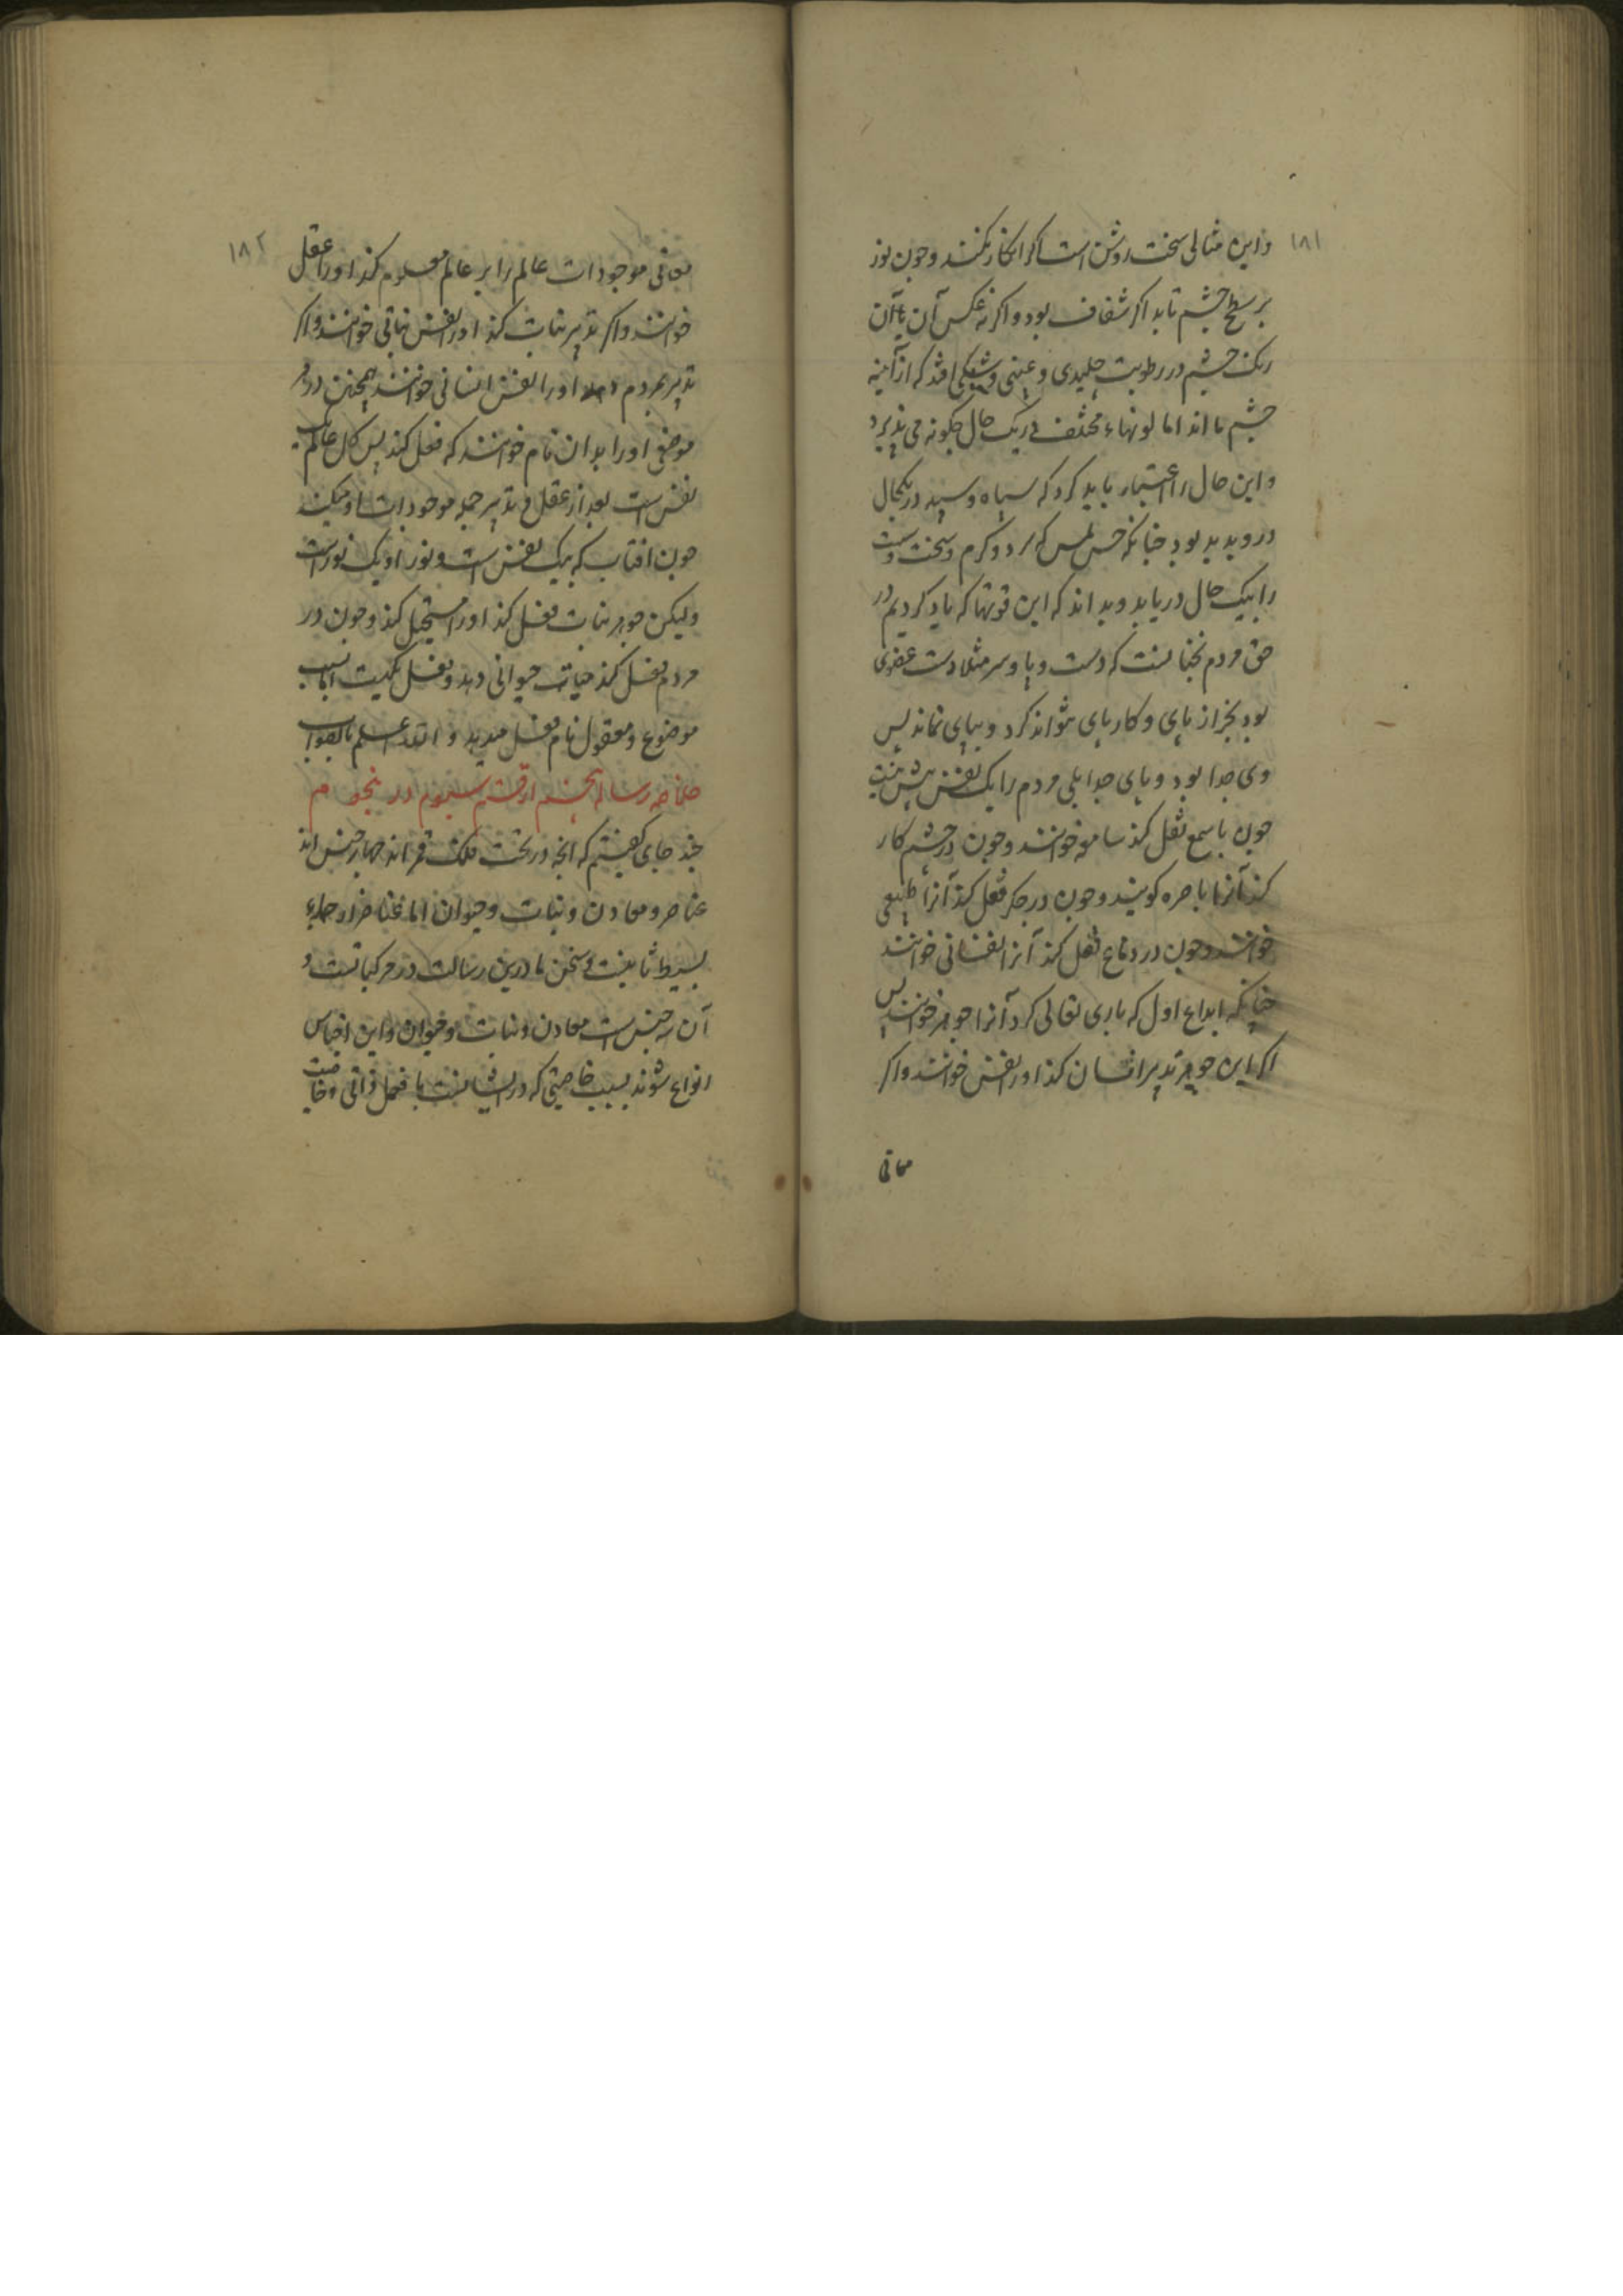 ۱۸۱
واین مثالی سخت روشن است اکر انکار نکنند وچون نور
بر سطح چشم تابد اکر شفاف بود واکر نه عکس آن با آن
رنک چشم در رطوبت جلیدی وعینی وشبکی افتد که از آینه
چشم ما اند اما لونهاء مختلف در یک حال چکونه می پذیرد
واین حال را اعتبار باید کرد که سیاه وسپید در یکحال
دروپدید بود چنانکه حس لمس که سرد وکرم وسخت وسست
را بیک حال دریابد وبداند که این قوتها که یاد کردیم در
حق مردم نچنانست که دست وپا وسر مثلا دست عضوی
بود بجز از پای وکار پای نتواند کرد وبپای نماند پس
وی جدا بود وپای جدا بلی مردم را یک نفس بیش نیست
چون با سمع فعل کند سامعه خوانند وچون در چشم کار
کند آنرا باصره کویند وچون در جکر فعل کند آنرا طبیعی
خوانند وچون در دماغ فعل کند آنرا نفسانی خوانند
چنانکه ابداع اول که باری تعالی کرد آنرا جوهر خوانند پس
اکر این جوهر تدبیر انسان کند اورا نفس خوانند واکر
معانی
۱۸۲
معانی موجودات عالم را بر عالم معلوم کند اورا عقل
خوانند واکر تدبیر نبات کند اورا نفس نباتی خوانند واکر
تدبیر مردم اورا نفس انسانی خوانند همچنین در هر
موضعی اورا بدان نام خوانند که فعل کند پس کل عالم یک
نفس است بعد از عقل و تدبیر جمله موجودات او میکند
چون افتاب که یک نفس است ونور او یک نوراست
ولیکن چو بر نبات فعل کند اورا مستحیل کند وچون در
مردم فعل کند حیات حیوانی دهد وفعل یکیست اما بسبب
موضوع ومعقول نام فعل میدهد والله اعلم بالصواب
خلاصه رساله هشتم از قسم سیوم در نجوم
چند جای کفتیم که انچه در تحت فلک قمر اند چهار جنس اند
عناصر ومعادن ونبات وحیوان اما عناصر از جمله
بسیط ثابتست وسخن ما درین رسالت در مرکباتست و
آن سه جنس است معادن ونبات وحیوان واین اجناس
انواع شوند بسبب خاصیتی که در ایشانست با فعل ذاتی وخاصیت